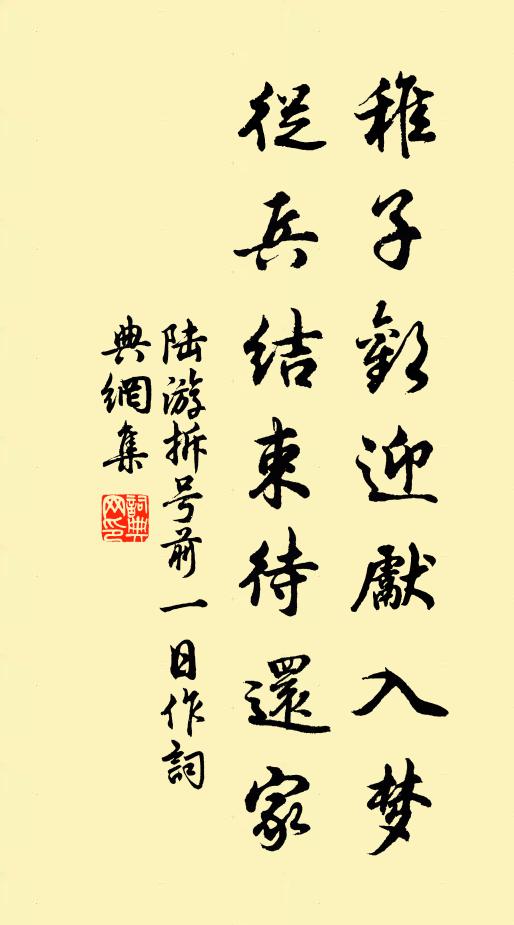 稚子歡迎獻入梦
從兵结束待還家
陆游拆号前一日作詞
典網集
詞典网印